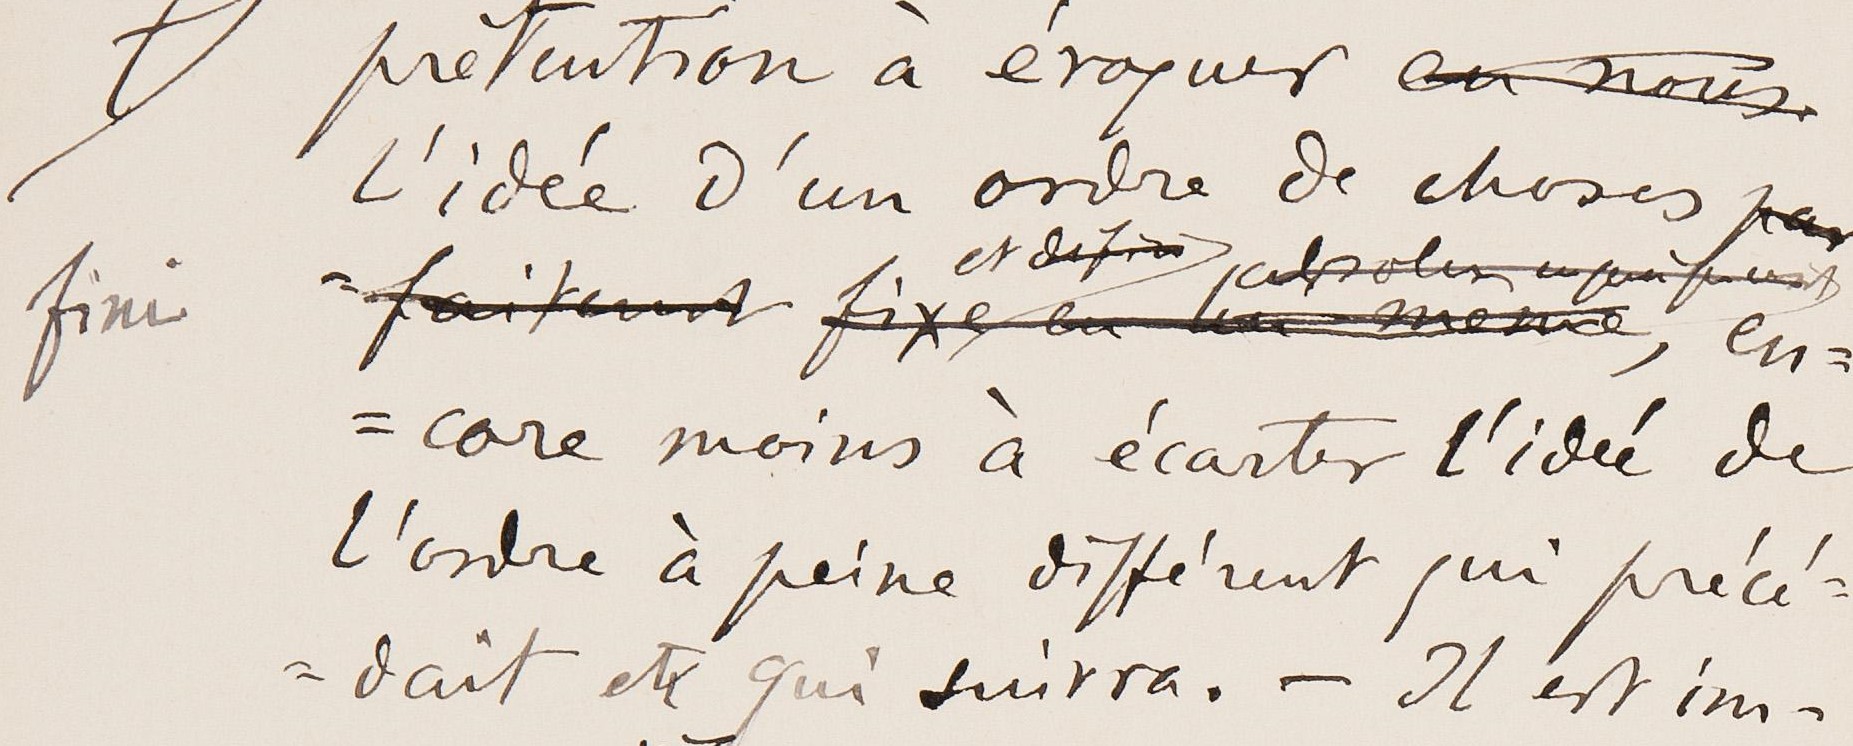 prétention à évoquer en nous
l'idée d'un ordre de choses par
et défini absolu
=faitement fixe en lui-même, en=
fini
=core moins à écarter l'idée de
l'ordre à peine différent qui précé=
=dait et qui suivra. — Il est im-